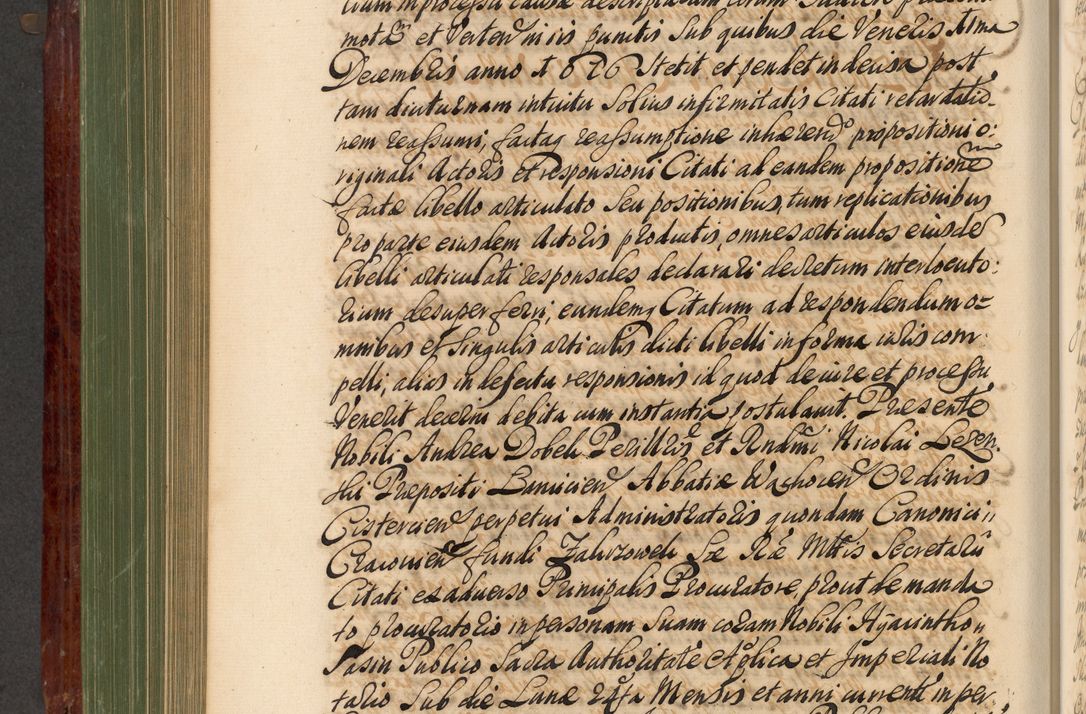 motâ et Verten in iis punctis sub quibus die Veneris 1ma
Decembris anno 1676 stetit et pendet indecisa post
tam diuturnam intuitu solius infirmitatis Citati retardatio-
nem reassumi, factaq reassumptione inhærendo propositioni o:
riginali Actoris et responsioni Citati ad eandem propositionem
factæ libello articulato seu positionibus, tum replicationibus
pro parte eiusdem Actoris productis, omnes articulos eiusdē
libelli articulati responsales declarari decretum interlocuto:
rium desuper ferri, eundemq Citatum ad respondendum o=
mnibus et singulis articulis dicti libelli in forma iuris com-
pelli, alias in defectu responsionis id quod de iure et processu
Venerit decerni debita cum instantia postulavit. Præsente
Nobili Andrea Dobek Perillris et Rndmi Nicolai
Præpositi Abbatiæ Wachocien Ordinis
Cistercien perpetui Administratoris quondam Canonici
Cracovien fundi Zaluzoweh Sæ Ræ Mttis Secretarii
Citati ex adverso Principalis Procuratore, prout de manda
to procuratorio in personam suam coram Nobili Hyacintho
Jasin Publico Sacra Authoritate Aplica et Imperiali No
tario sub die Lunæ Mensis et anni currenti in per